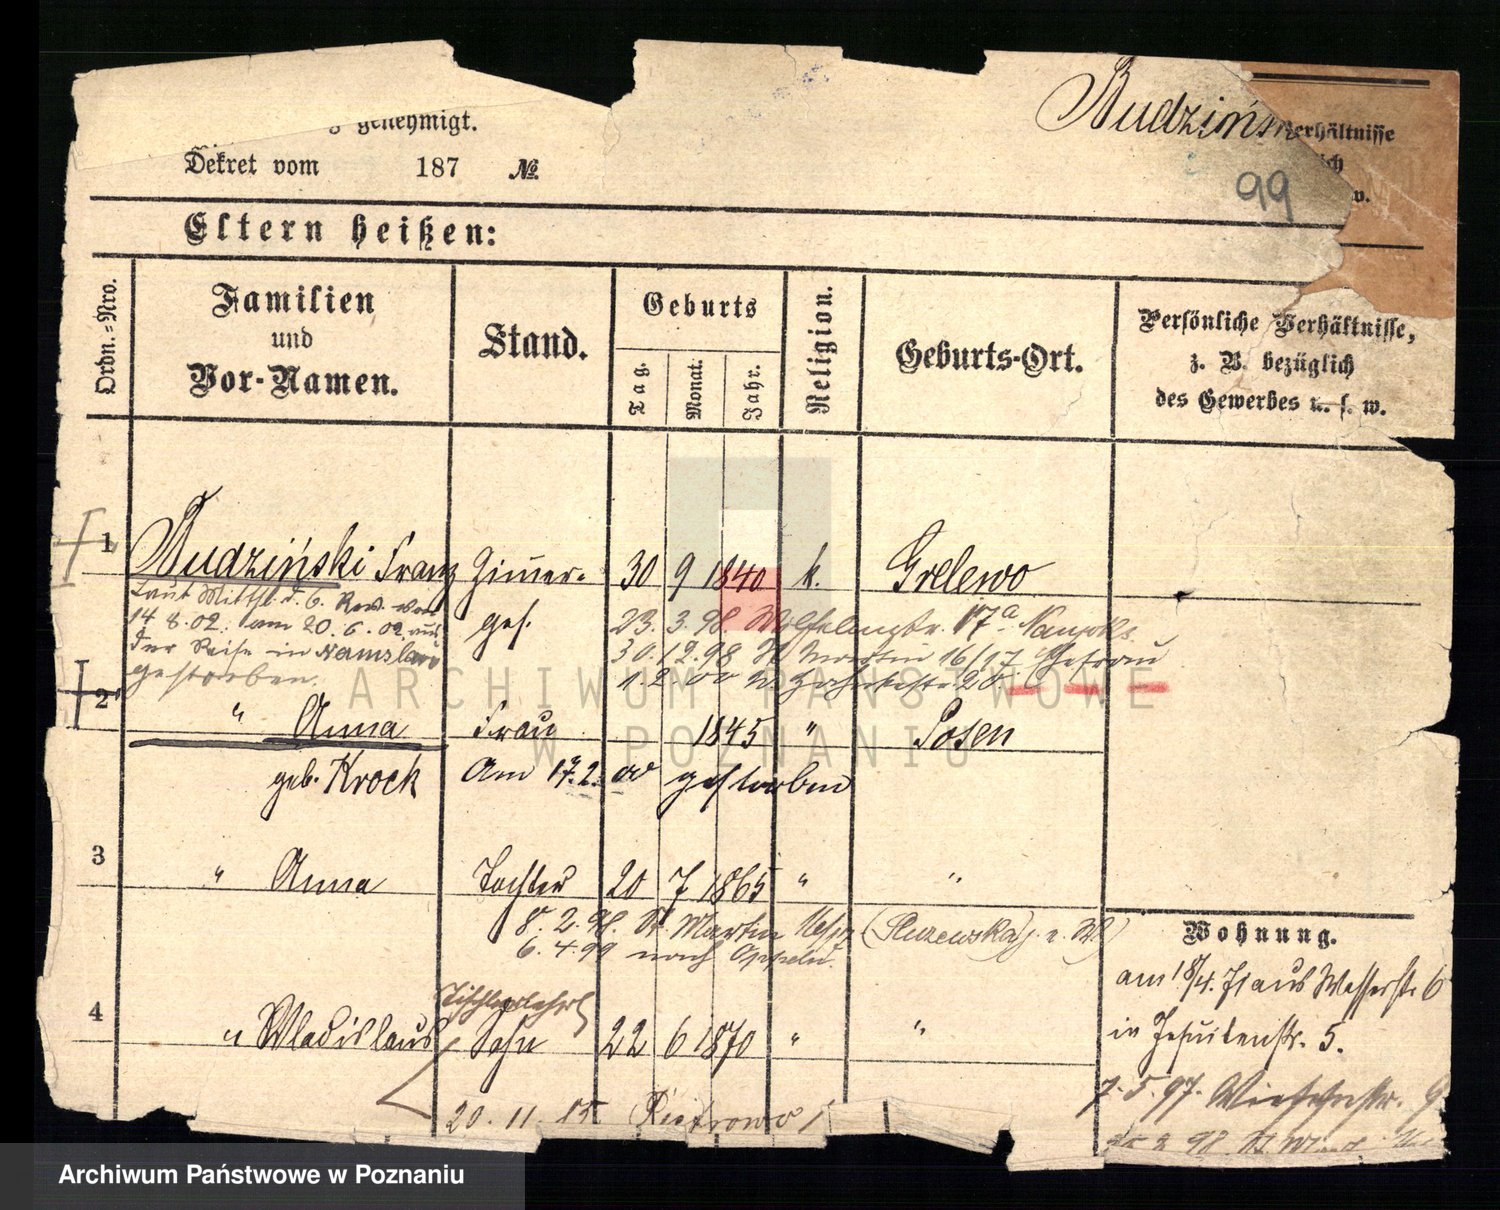 genehmigt.
Dekret vom 187 No.
Budzińs
99
erhältnisse
ich
w.
Eltern heißen:
Ordn.-Nro.
Familien
und
Vor-Namen.
Stand.
Geburts
Tag.
Monat.
Jahr.
Religion.
Geburts-Ort.
Persönliche Verhältnisse,
z. B. bezüglich
des Gewerbes u. s. w.
1 Budziński Franz Zimmer- 30 9 1840 k. Grelewo
ges.
Laut Mitthl. d. 6. Rev. von
14.8.02. am 20.6.02. aus
der Reise in Namslau
gestorben.
23.3.98. 17a
30.12.98 St Martin 16/17 Ehefrau
1 2 00 20
2 " Anna Frau 1845 " Posen
geb. Krock Am 17.2.00 gestorben
3 " Anna Tochter 20 7 1865 " "
8.2.98. St Martin
6.4.99 nach Oppeln.
4 " Wladislaus Sohn 22 6 1870 " "
Tischlerlehrl
20.11.85 Pietrowo
Wohnung.
am 18/4. 71 aus Wasserstr 6
in Jesuitenstr. 5.
7.5.97. Wiesenstr. 9
98. St
ARCHIWUM PAŃSTWOWE
W POZNANIU
Archiwum Państwowe w Poznaniu